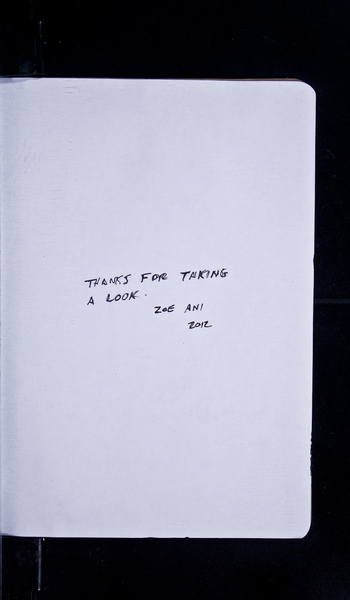 THANKS FOR TAKING
A LOOK.
ZOE ANI
2012